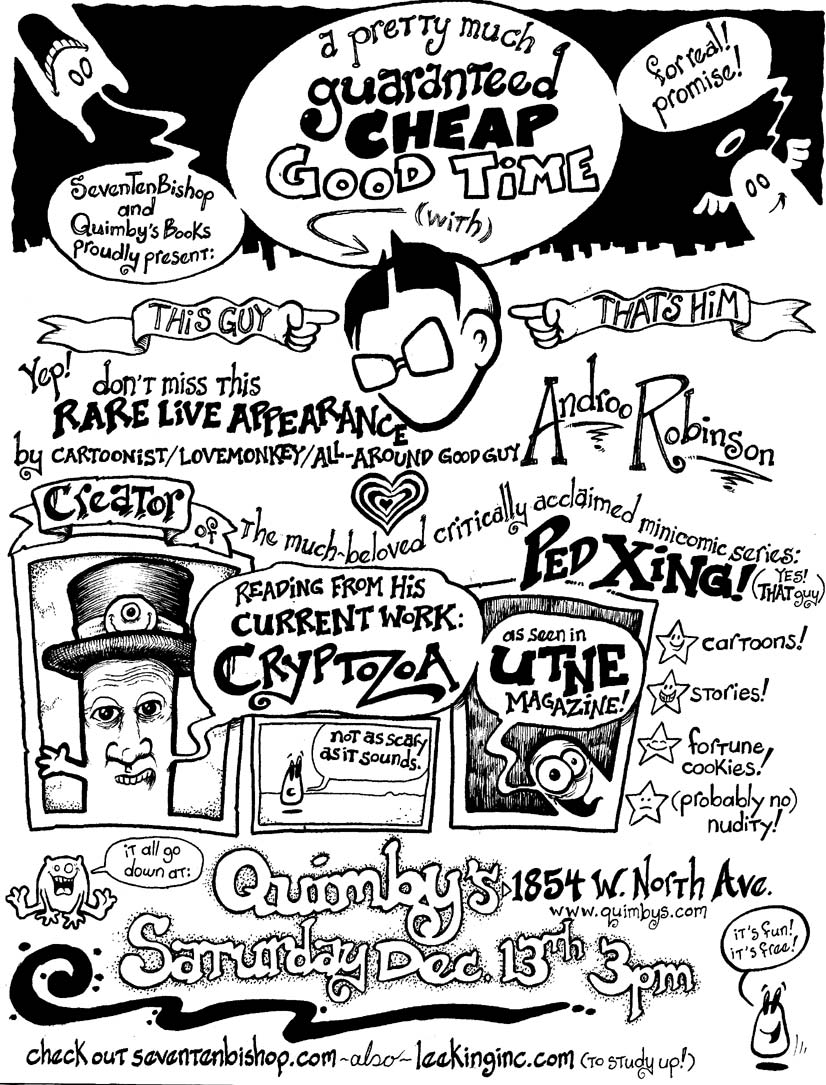 a pretty much
guaranteed
CHEAP
GOOD TIME
(with)
for real!
promise!
SevenTenBishop
and
Quimby's Books
proudly present:
THIS GUY
THAT'S HIM
Yep! don't miss this
RARE LIVE APPEARANCE
by CARTOONIST/LOVEMONKEY/ALL-AROUND GOOD GUY
Androo Robinson
Creator
of the much-beloved critically acclaimed minicomic series:
PED XING!
(YES!
THAT guy)
READING FROM HIS
CURRENT WORK:
CRYPTOZOA
as seen in
UTNE
MAGAZINE!
not as scary
as it sounds!
cartoons!
stories!
fortune
cookies!
(probably no)
nudity!
it all go
down at:
Quimby's 1854 W. North Ave.
www.quimbys.com
Saturday Dec. 13th 3pm
it's fun!
it's free!
check out seventenbishop.com ~also~ leekinginc.com (to study up!)